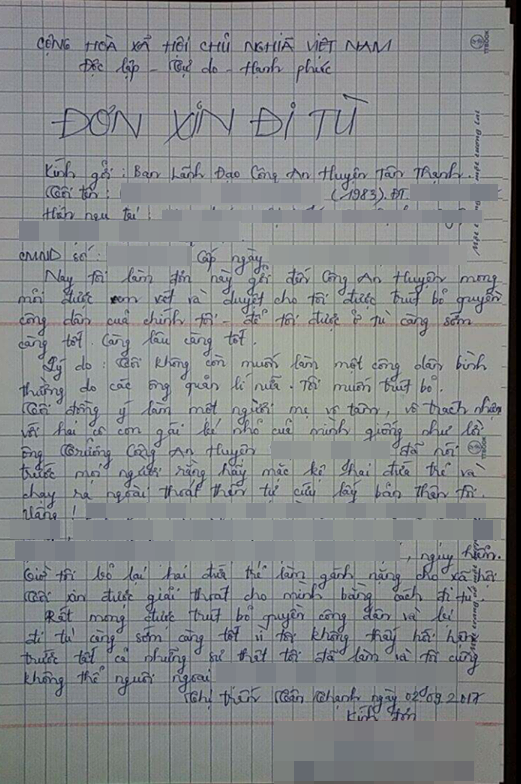 CỘNG HOÀ XÃ HỘI CHỦ NGHĨA VIỆT NAM
Độc lập - Tự do - Hạnh phúc
ĐƠN XIN ĐI TÙ
Kính gởi : Ban Lãnh Đạo Công An Huyện Tân Thạnh.
Tôi tên : (1983). ĐT.
Hiện ngụ tại :
CMND số : Cấp ngày
Nay tôi làm đơn này gởi đến Công An Huyện mong
mỏi được xem xét và duyệt cho tôi được trút bỏ quyền
công dân của chính tôi - để tôi được ở tù càng sớm
càng tốt. Càng lâu càng tốt.
Lý do : Tôi không còn muốn làm một công dân bình
thường do các ông quản lí nữa. Tôi muốn trút bỏ.
Tôi đồng ý làm một người mẹ vô tâm, vô trách nhiệm
với hai cô con gái bé nhỏ của mình giống như lời
ông Trưởng Công An Huyện đã nói
trước mọi người rằng hãy mặc kệ hai đứa trẻ và
chạy ra ngoài thoát thân tự cứu lấy bản thân tôi.
Vâng !
, nguy hiểm.
Giờ tôi bỏ lại hai đứa trẻ làm gánh nặng cho xã hội
Tôi xin được giải thoát cho mình bằng cách đi tù
Rất mong được trút bỏ quyền công dân và
đi tù càng sớm càng tốt vì tôi không thấy hối hận
trước tất cả những sự thật tôi đã làm và tôi cũng
không thể nguôi ngoai
Thị trấn Tân Thạnh ngày 02.09.2017
Kính đơn